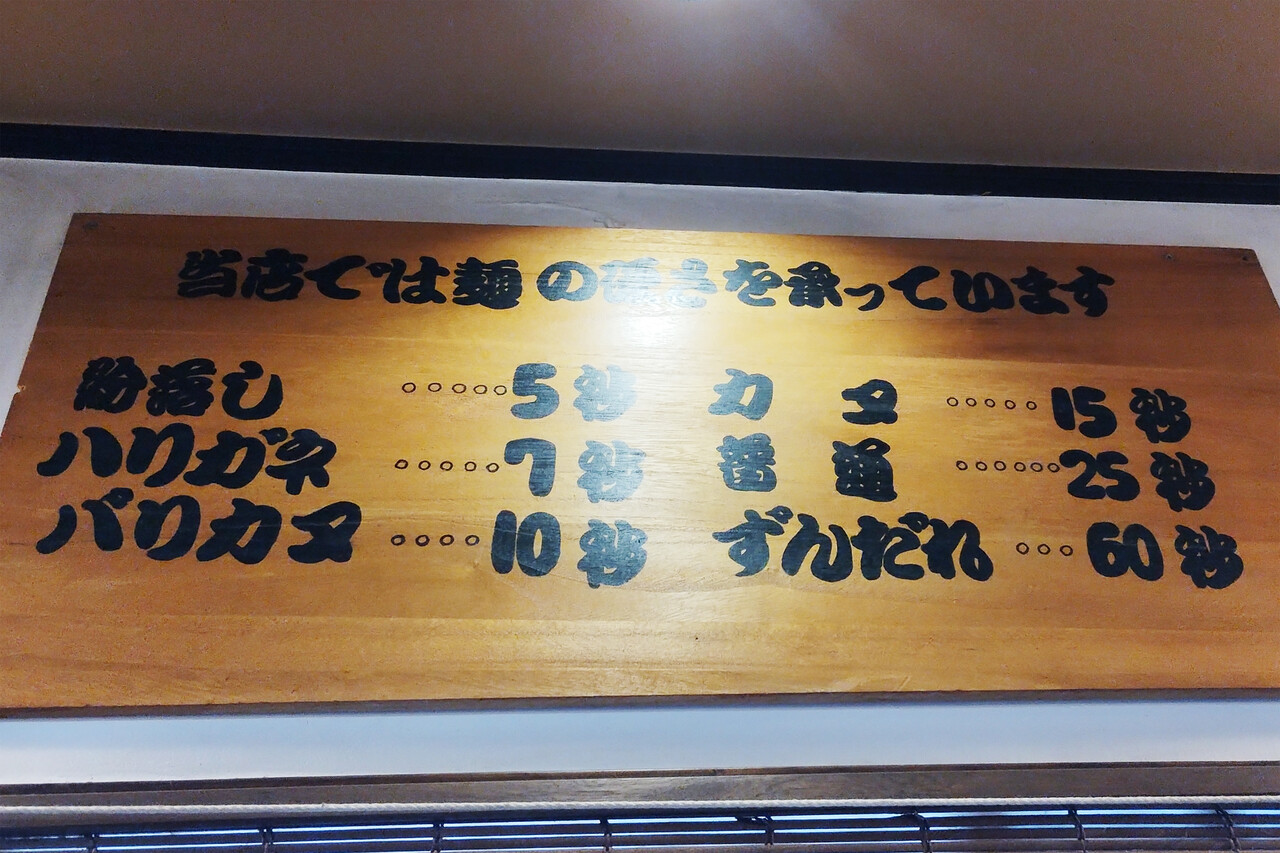 当店では麺の硬さを承っています
粉落し ○○○○○5秒
ハリガネ ○○○○○7秒
バリカタ ○○○○10秒
カタ ○○○○○15秒
普通 ○○○○○○25秒
ずんだれ ○○○60秒